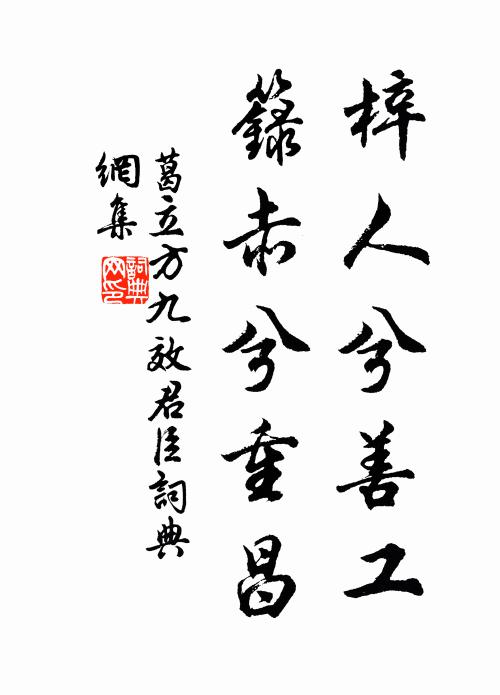 梓人兮善工
籙赤兮重昌
葛立方九效君臣詞典
網集
詞典
网印